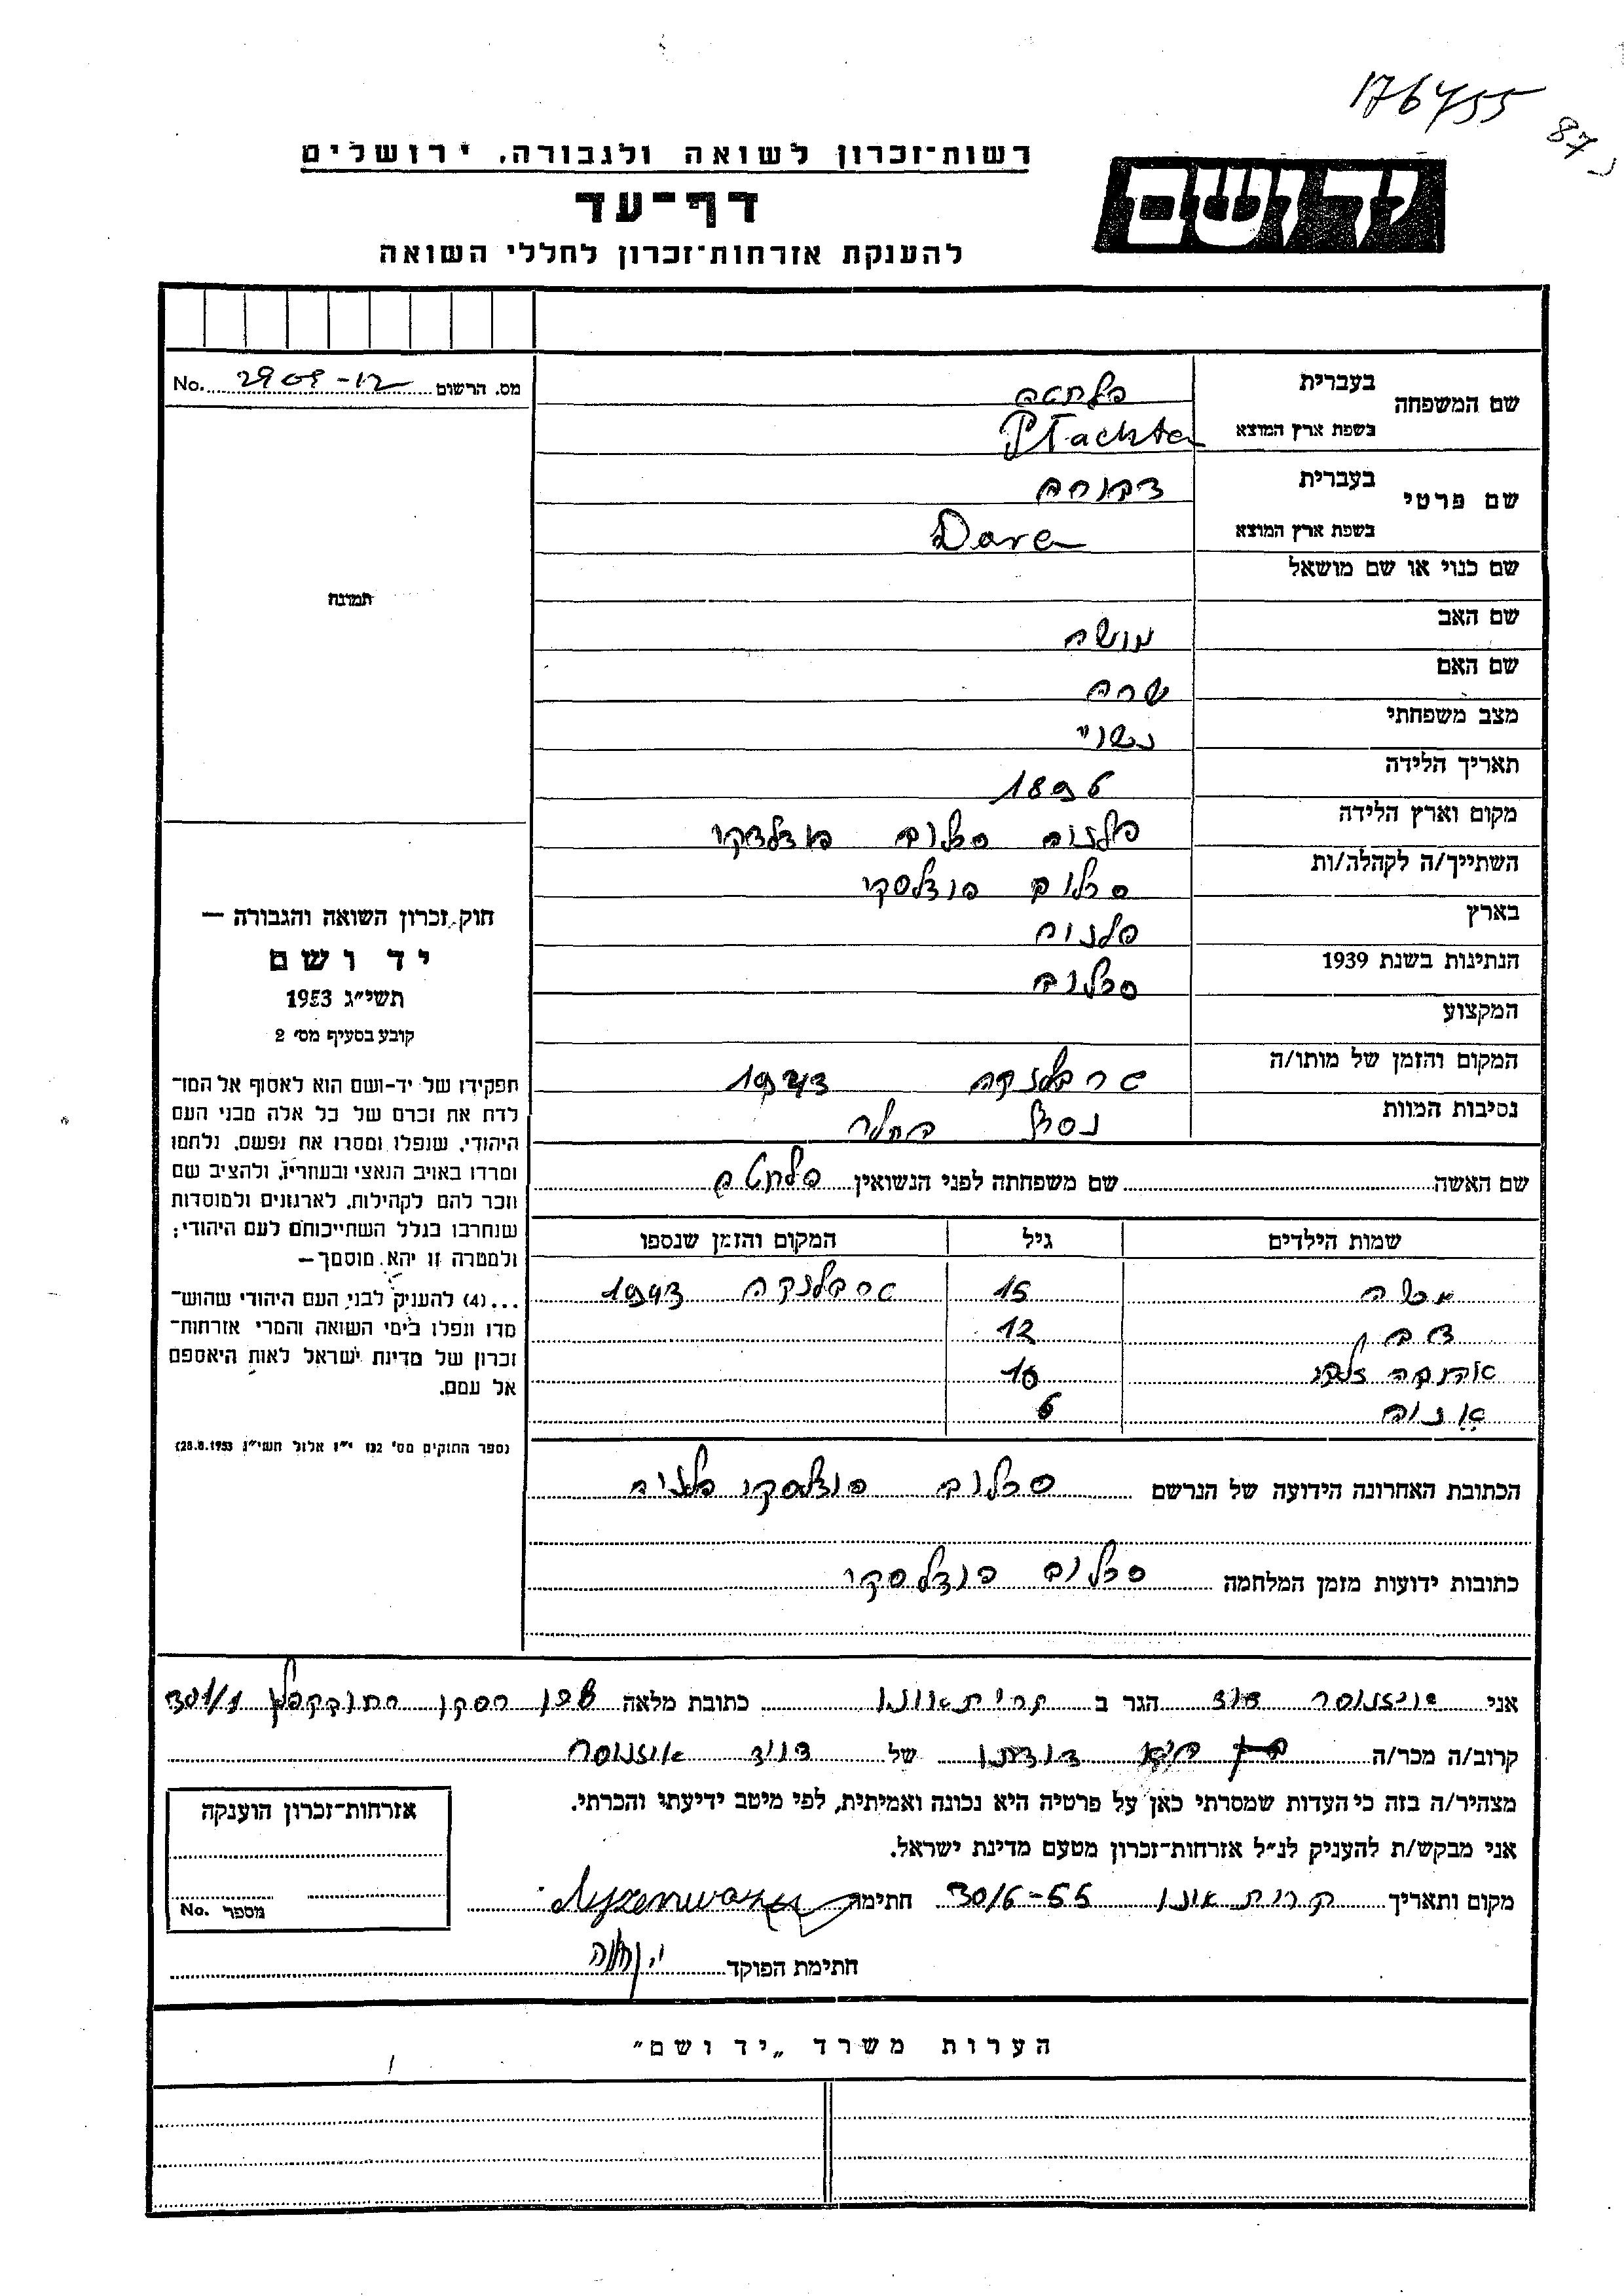 176455
87
יד ושם
רשות־זכרון לשואה ולגבורה, ירושלים
דף־עד
להענקת אזרחות־זכרון לחללי השואה
מס. הרשום 2909-12 No.
שם המשפחה בעברית פלחטה
בשפת ארץ המוצא Płachta
שם פרטי בעברית דבורה
בשפת ארץ המוצא Dora
שם כנוי או שם מושאל
תמונה
שם האב מושה
שם האם שרה
מצב משפחתי נשוי
תאריך הלידה 1896
מקום וארץ הלידה
השתייך/ה לקהלה/ות
בארץ
הנתינות בשנת 1939
המקצוע
המקום והזמן של מותו/ה טרבלנקה 1943
נסיבות המוות
שם האשה שם משפחתה לפני הנשואין פלחטה
שמות הילדים גיל המקום והזמן שנספו
15 טרבלנקה 1943
12
10
6
הכתובת האחרונה הידועה של הנרשם
כתובות ידועות מזמן המלחמה
חוק זכרון השואה והגבורה —
יד ושם
תשי״ג 1953
קובע בסעיף מס׳ 2
תפקידו של יד-ושם הוא לאסוף אל המו־
לדת את זכרם של כל אלה מבני העם
היהודי, שנפלו ומסרו את נפשם, נלחמו
ומרדו באויב הנאצי ובעוזריו, ולהציב שם
וזכר להם לקהילות, לארגונים ולמוסדות
שנחרבו בגלל השתייכותם לעם היהודי;
ולמטרה זו יהא מוסמך —
...(4) להעניק לבני העם היהודי שהוש־
מדו ונפלו בימי השואה והמרי אזרחות־
זכרון של מדינת ישראל לאות היאספם
אל עמם.
(ספר החוקים מס׳ 132 י״ז אלול תשי״ג 28.8.1953)
אני הגר ב קרית אונו כתובת מלאה 301/1
קרוב/ה מכר/ה של דויד
מצהיר/ה בזה כי העדות שמסרתי כאן על פרטיה היא נכונה ואמיתית, לפי מיטב ידיעתי והכרתי.
אני מבקש/ת להעניק לנ״ל אזרחות־זכרון מטעם מדינת ישראל.
מקום ותאריך קרית אונו 30/6-55 חתימה
חתימת הפוקד
אזרחות־זכרון הוענקה
מספר No.
הערות משרד „יד ושם״